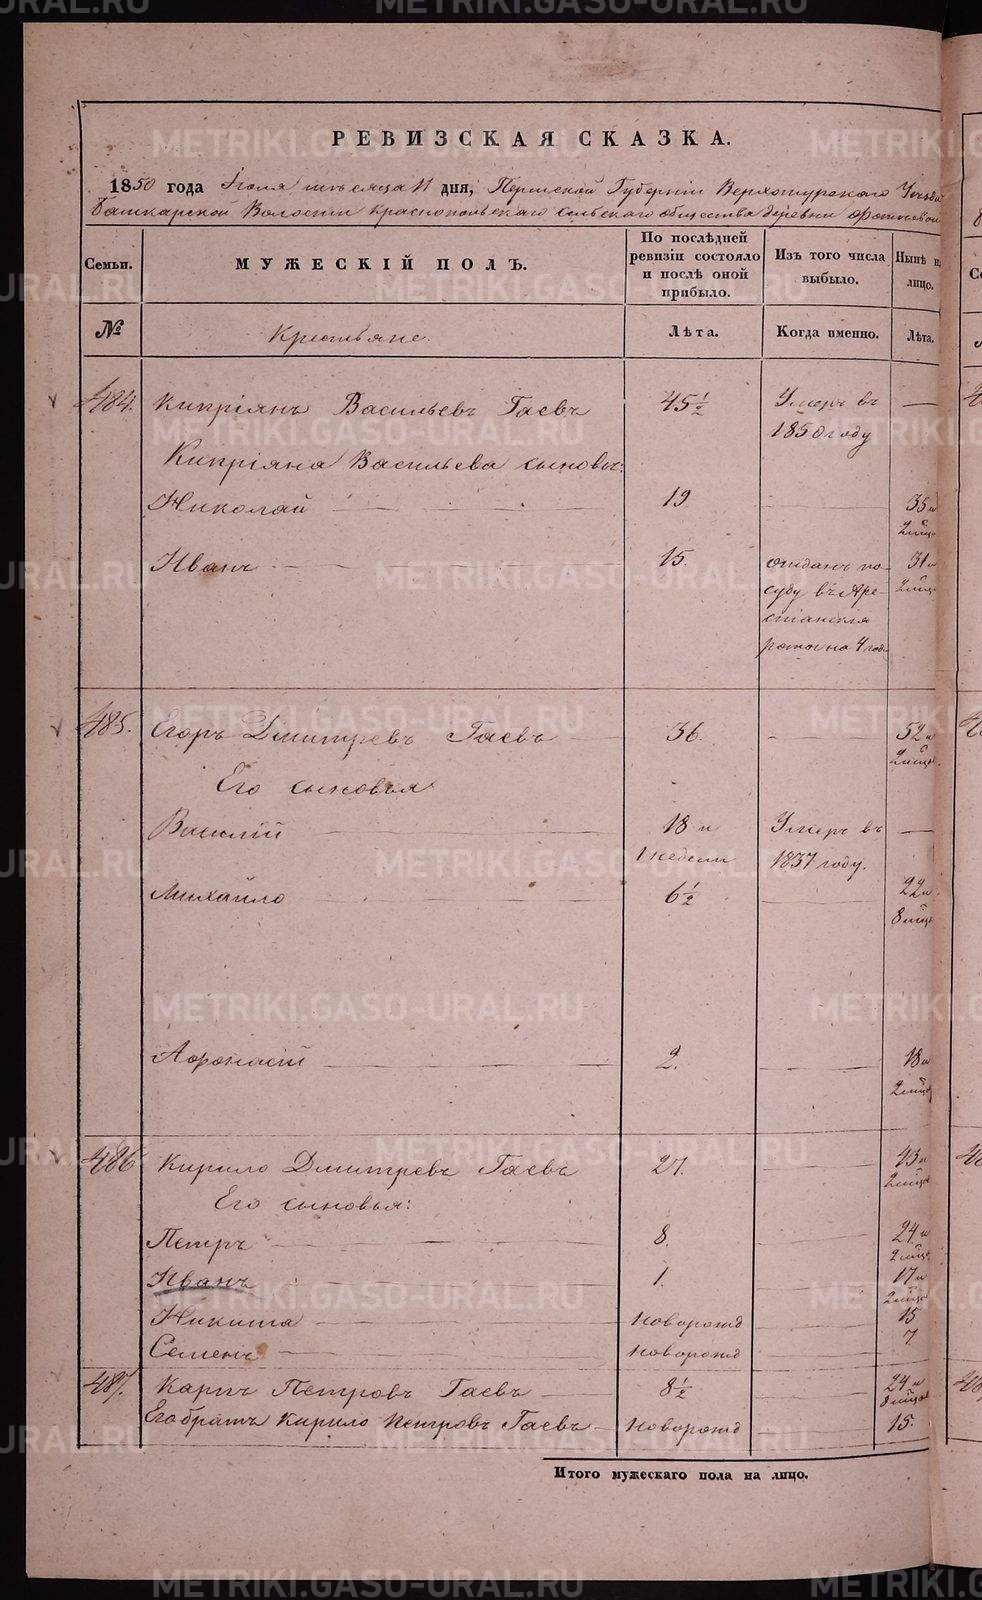 РЕВИЗСКАЯ СКАЗКА.
1850 года Іюля мѣсяца 11 дня, Пермской Губерніи Верхотурскаго Уѣзда
Башкарской Волости Краснопольскаго сельскаго общества деревни Фотѣевой
Семьи. МУЖЕСКІЙ ПОЛЪ. По послѣдней ревизіи состояло и послѣ оной прибыло. Изъ того числа выбыло. Нынѣ на лицо.
№ Крестьяне. Лѣта. Когда именно. Лѣта.
484. Кипріянъ Васильевъ Гаевъ 45½ Умеръ въ —
1850 году
Кипріяна Васильева сыновья:
Николай 19. 35 и
2 мѣсяц
Иванъ 15. отданъ по 31 и
суду въ Аре- 2 мѣсяц
стански
роты на 4 года
485. Егоръ Дмитревъ Гаевъ 36. 52 и
2 мѣсяц.
Его сыновья
Василій 18 и Умеръ въ —
1 недели 1837 году.
Михайло 6½ 22 и
8 мѣсяц
Афонасій 2. 18 и
2 мѣсяц
486 Кирило Дмитревъ Гаевъ 27. 43 и
2 мѣсяц
Его сыновья:
Петръ 8. 24 и
2 мѣсяц
Иванъ 1. 17 и
2 мѣсяц
Никита новорожд 15
Семенъ новорожд 7
487. Карпъ Петровъ Гаевъ 8½ 24 и
8 мѣсяц
Его братъ Кирило Петровъ Гаевъ новорожд 15.
Итого мужескаго пола на лицо.
METRIKI.GASO-URAL.RU